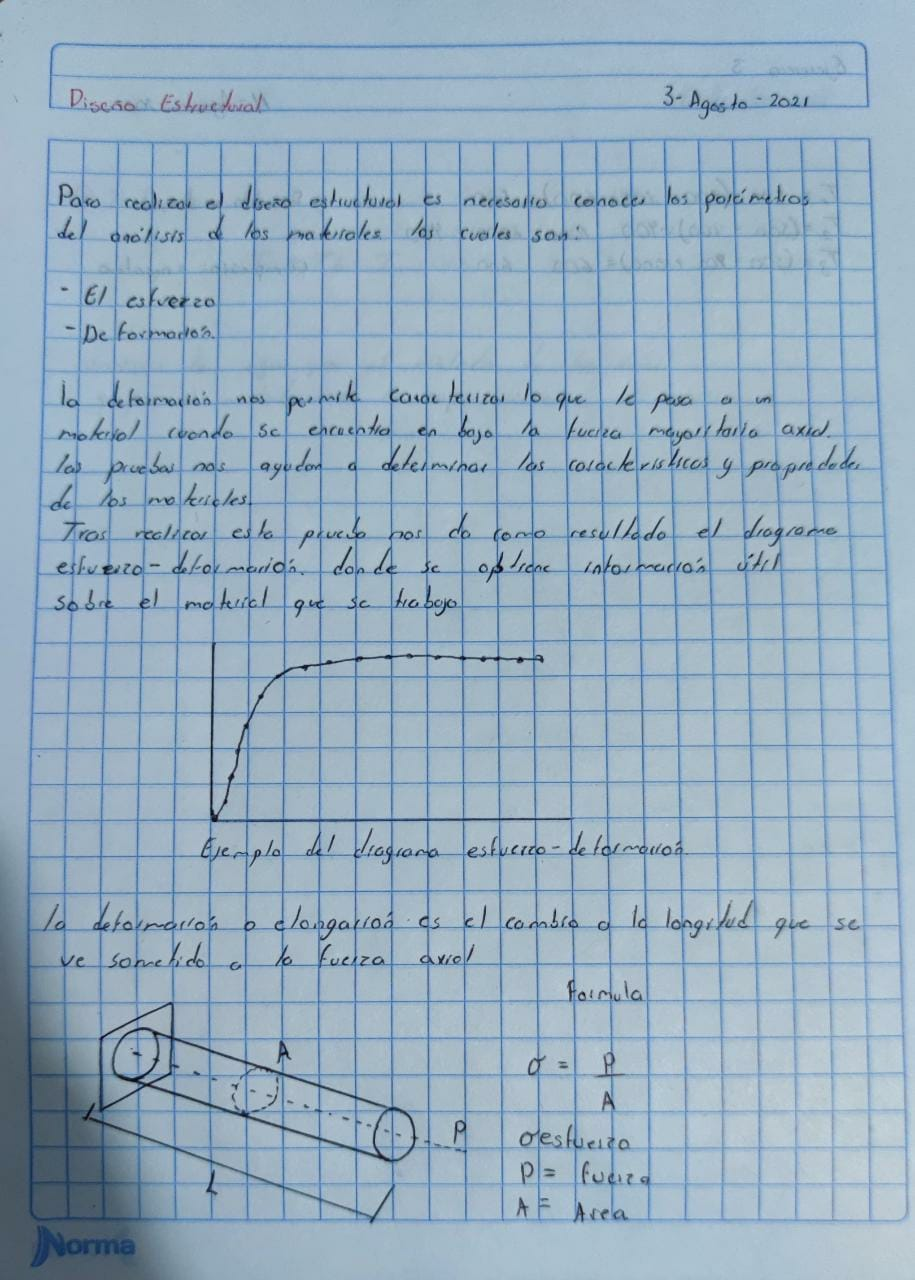 Diseño Estructural
3-Agosto-2021
Para realizar el diseño estructural es necesario conocer los parámetros
del análisis d los materiales los cuales son:
- El esfuerzo
- Deformación.
la deformación nos permite caracterizar lo que le pasa a un
material cuando se encuentra en bajo la fuerza mayoritaria axial.
las pruebas nos ayudan a determinar las características y propiedades
de los materiales.
Tras realizar esta prueba nos da como resultado el diagrama
esfuerzo-deformación. donde se optiene información útil
sobre el material que se trabajo
Ejemplo del diagrama esfuerzo-deformación.
la deformación o elongación es el cambio a la longitud que se
ve sometido a la fuerza axial
Formula
A
P
L
σ = P
A
σ esfuerzo
P = fuerza
A = Area
Norma